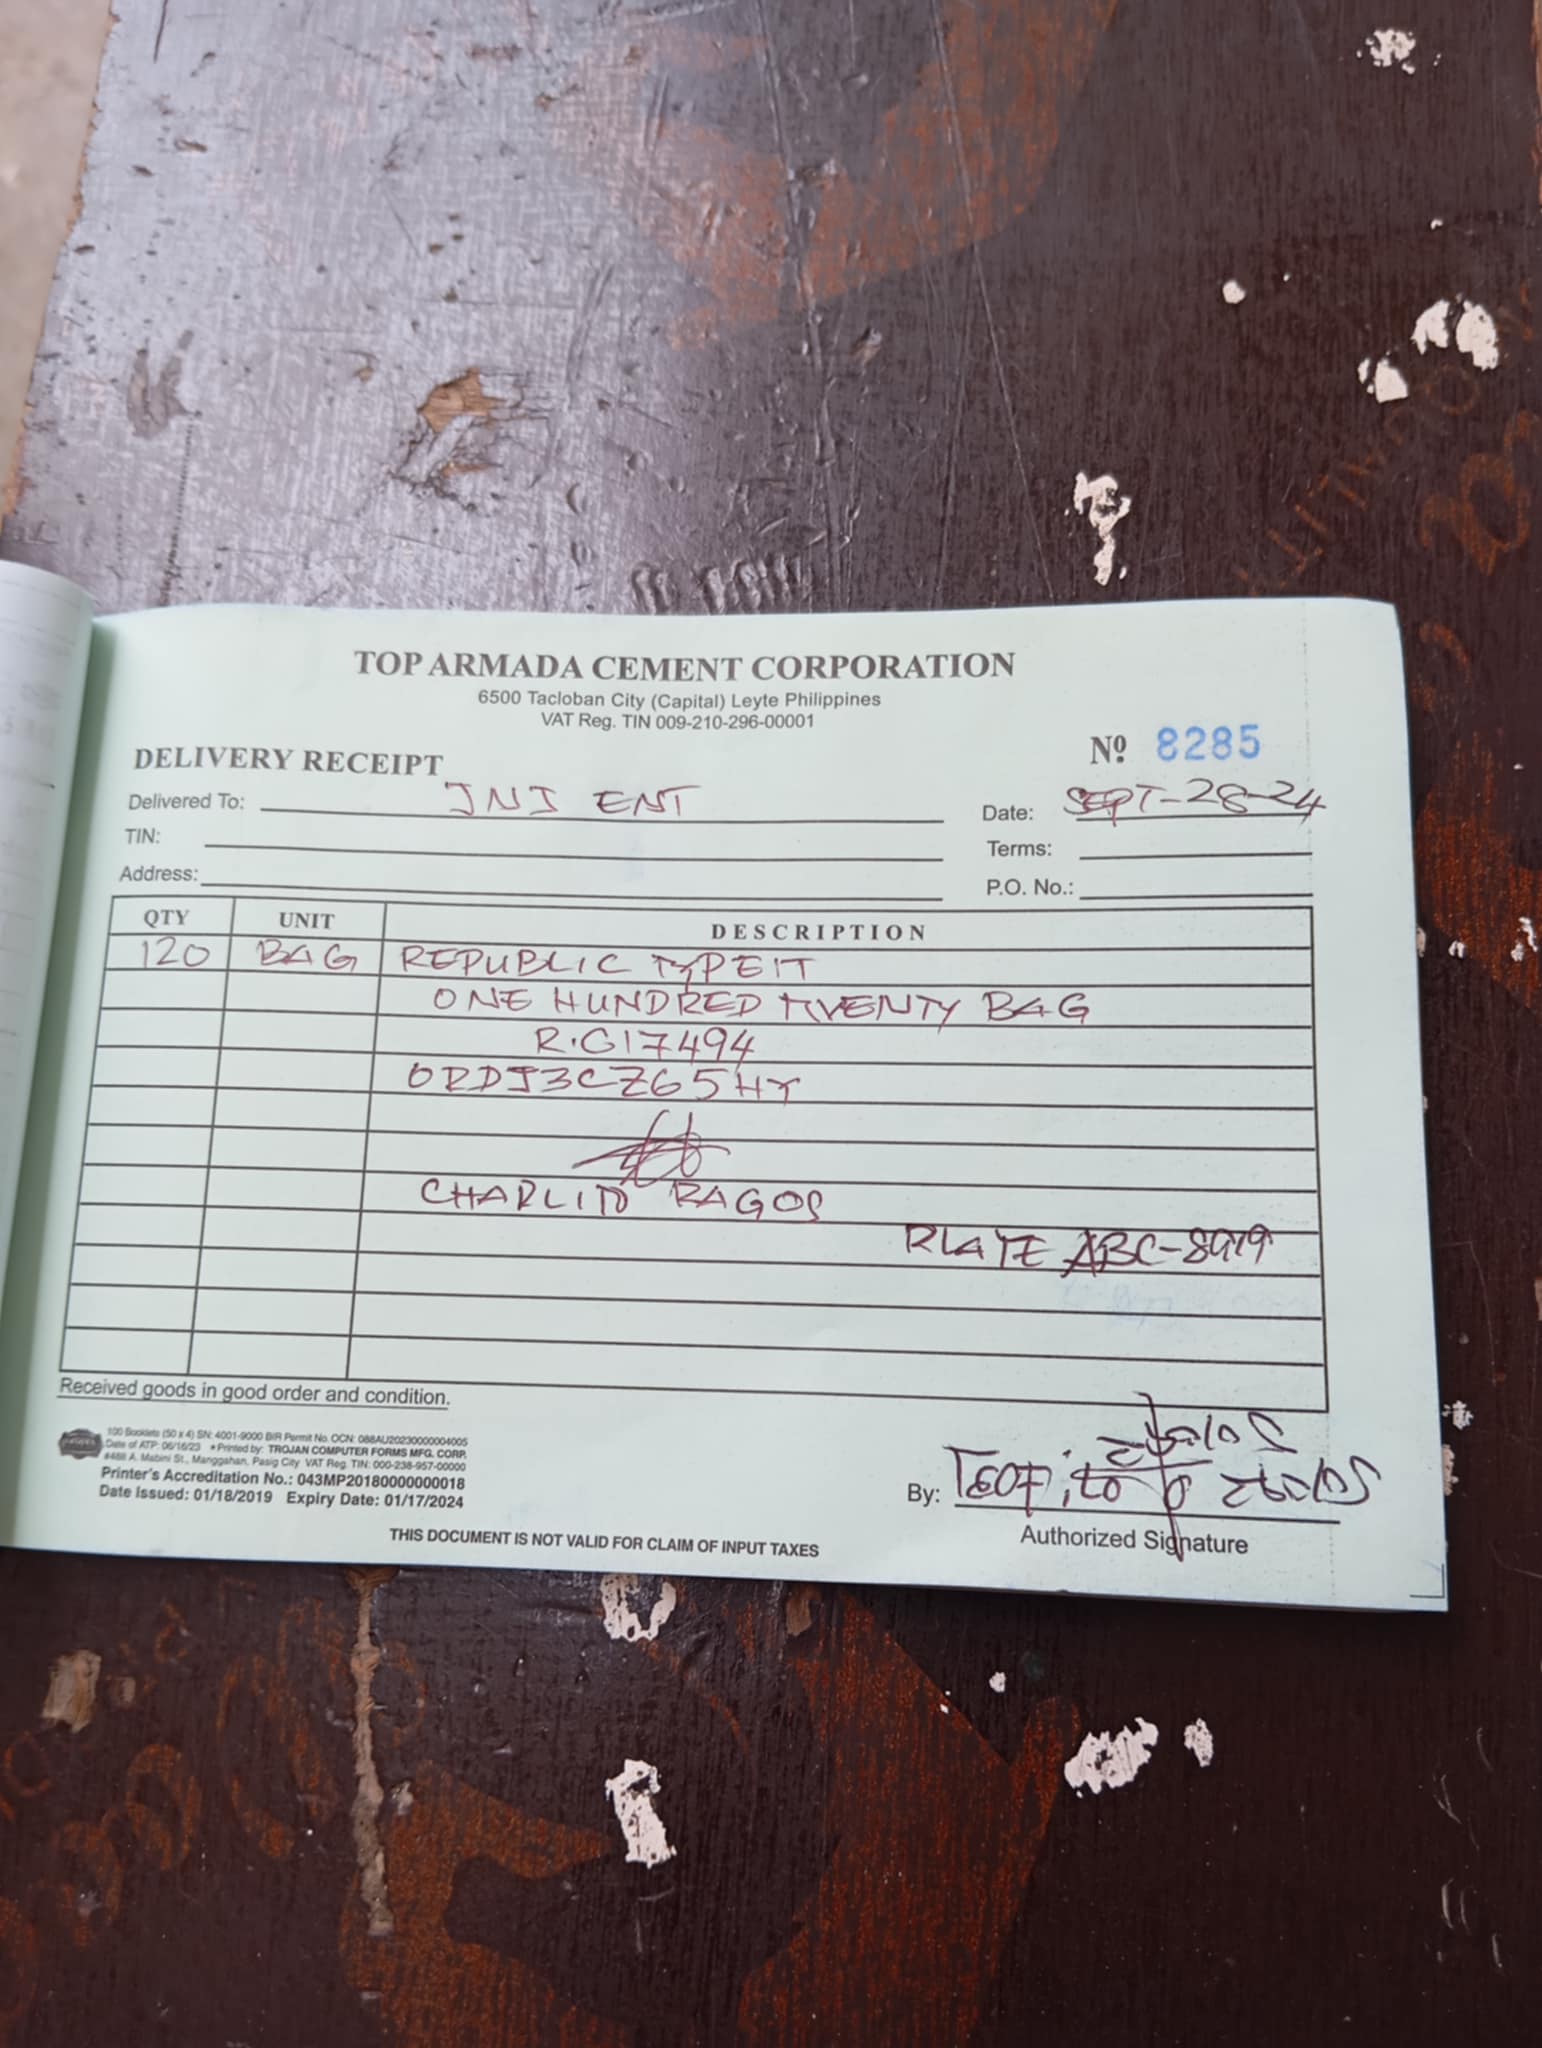 TOP ARMADA CEMENT CORPORATION
6500 Tacloban City (Capital) Leyte Philippines
VAT Reg. TIN 009-210-296-00001
DELIVERY RECEIPT
Nº 8285
Delivered To: JNJ ENT
Date: SEPT-28-24
TIN:
Terms:
Address:
P.O. No.:
QTY UNIT DESCRIPTION
120 BAG REPUBLIC TYPE1T
ONE HUNDRED TWENTY BAG
R.G17494
ORDJ3CZ65HY
CHARLITO RAGOS
PLATE ABC-8919
Received goods in good order and condition.
100 Booklets (50 x 4) SN: 4001-9000 BIR Permit No. OCN: 088AU20230000004005
Date of ATP: 06/16/23 *Printed by: TROJAN COMPUTER FORMS MFG. CORP.
#488 A. Mabini St., Manggahan, Pasig City VAT Reg. TIN: 000-238-957-00000
Printer's Accreditation No.: 043MP20180000000018
Date Issued: 01/18/2019 Expiry Date: 01/17/2024
By:
Authorized Signature
THIS DOCUMENT IS NOT VALID FOR CLAIM OF INPUT TAXES